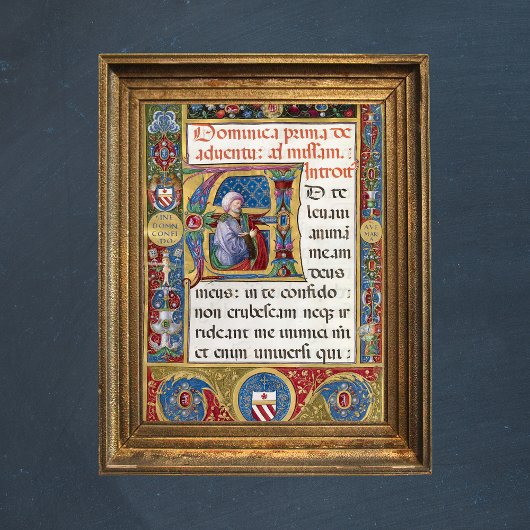 Dominica prima de
adventu: ad missam.
Introit'
A D te
levavi
animā
meam
deus
meus: in te confido
non erubescam neq; ir
rideant me inimici m̄i
et enim universi qui:
SINE
DOMN̄
CONFI
DO
AVE
MAR